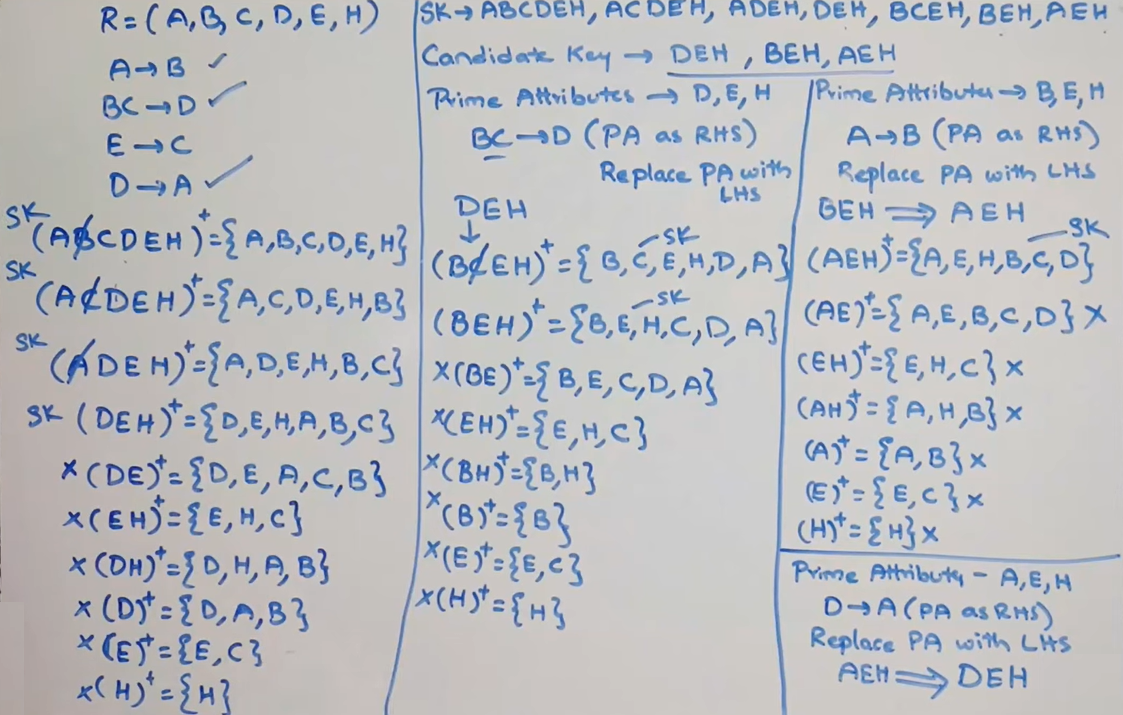 R = (A, B, C, D, E, H)
A → B ✓
BC → D ✓
E → C
D → A ✓
SK (ABCDEH)⁺ = {A, B, C, D, E, H}
SK (ACDEH)⁺ = {A, C, D, E, H, B}
SK (ADEH)⁺ = {A, D, E, H, B, C}
SK (DEH)⁺ = {D, E, H, A, B, C}
x (DE)⁺ = {D, E, A, C, B}
x (EH)⁺ = {E, H, C}
x (DH)⁺ = {D, H, A, B}
x (D)⁺ = {D, A, B}
x (E)⁺ = {E, C}
x (H)⁺ = {H}
SK → ABCDEH, ACDEH, ADEH, DEH, BCEH, BEH, AEH
Candidate Key → DEH, BEH, AEH
Prime Attributes → D, E, H
BC → D (PA as RHS)
Replace PA with
LHS
DEH
↓
SK
(BCEH)⁺ = {B, C, E, H, D, A}
SK
(BEH)⁺ = {B, E, H, C, D, A}
x (BE)⁺ = {B, E, C, D, A}
x (EH)⁺ = {E, H, C}
x (BH)⁺ = {B, H}
x (B)⁺ = {B}
x (E)⁺ = {E, C}
x (H)⁺ = {H}
Prime Attributes → B, E, H
A → B (PA as RHS)
Replace PA with LHS
BEH ⟹ AEH
SK
(AEH)⁺ = {A, E, H, B, C, D}
(AE)⁺ = {A, E, B, C, D} x
(EH)⁺ = {E, H, C} x
(AH)⁺ = {A, H, B} x
(A)⁺ = {A, B} x
(E)⁺ = {E, C} x
(H)⁺ = {H} x
Prime Attributes - A, E, H
D → A (PA as RHS)
Replace PA with LHS
AEH ⟹ DEH